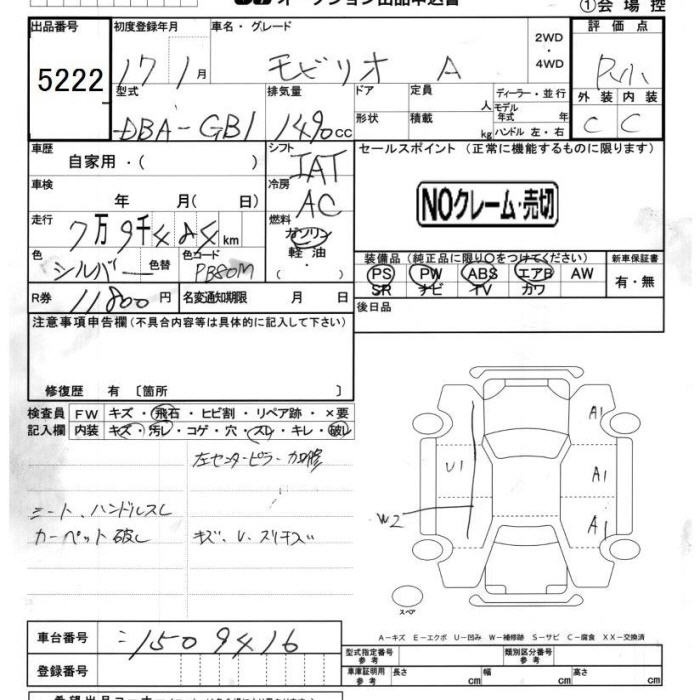 オークション出品申込書
①会場控
出品番号 初度登録年月 車名・グレード 評価点
5222 17 1月 モビリオ A 2WD・4WD
型式 排気量 ドア 定員 人 ディーラー・並行 外装 内装
DBA-GB1 1490cc 形状 積載 kg モデル年式 年 ハンドル 左・右 C C
車歴 シフト セールスポイント (正常に機能するものに限ります)
自家用・( ) IAT
車検 冷房 NOクレーム・売切
年 月( 日) AC
走行 燃料
7万9千4 km ガソリン
色 色替 色コード 軽油 装備品 (純正品に限り○をつけてください) 新車保証書
シルバー PB80M ・( ) PS PW ABS エアB AW 有・無
R券 11800円 名変通知期限 月 日 SR ナビ TV カワ
注意事項申告欄(不具合内容等は具体的に記入して下さい) 後日品
修復歴 有 〔箇所 〕
検査員 FW キズ・飛石・ヒビ割・リペア跡・×要
記入欄 内装 キズ・汚レ・コゲ・穴・スレ・キレ・破レ
左センターピラー加修
シート、ハンドルスレ
カーペット破レ キズ、U、スリキズ
A1
U1 A1
W2 A1
スペア
A-キズ E-エクボ U-凹み W-補修跡 S-サビ C-腐食 XX-交換済
車台番号 1509416
登録番号
型式指定番号 参考 類別区分番号 参考
車庫証明用 参考 長さ cm 幅 cm 高さ cm